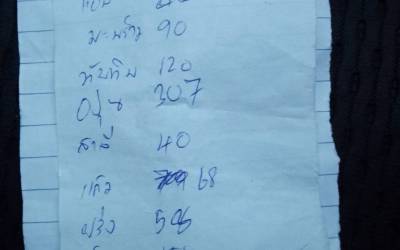 มะพร้าว 90
ทับทิม 120
องุ่น 307
สาลี่ 40
แก้ว 68
ฝรั่ง 58